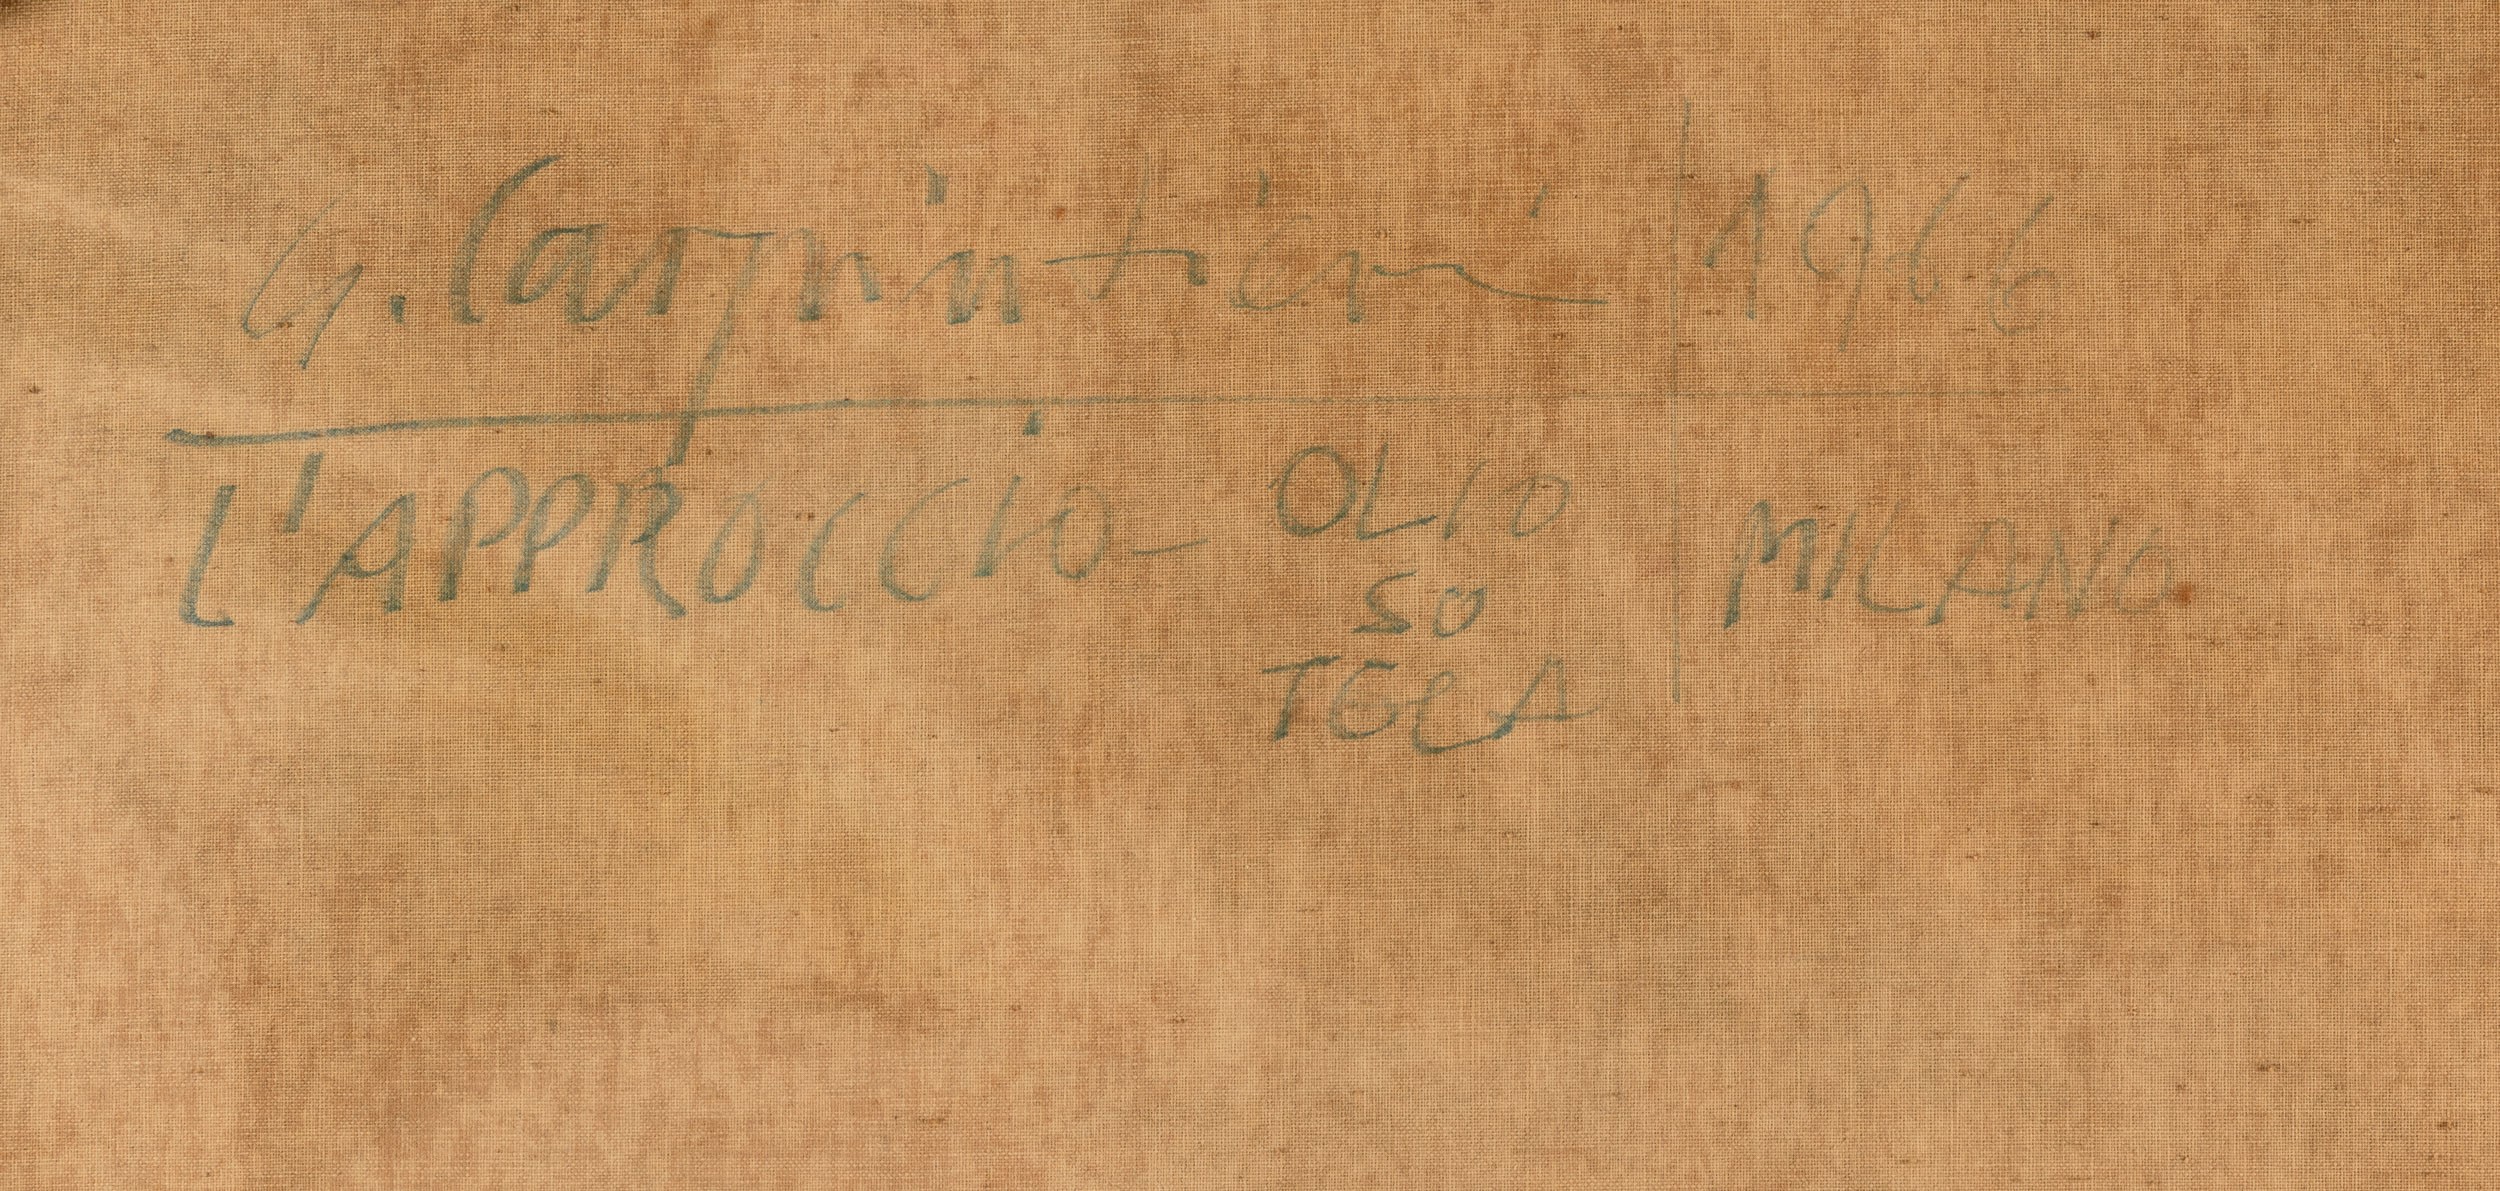 G. Carpintieri 1966
L'APPROCCIO - OLIO
SU
TELA
MILANO